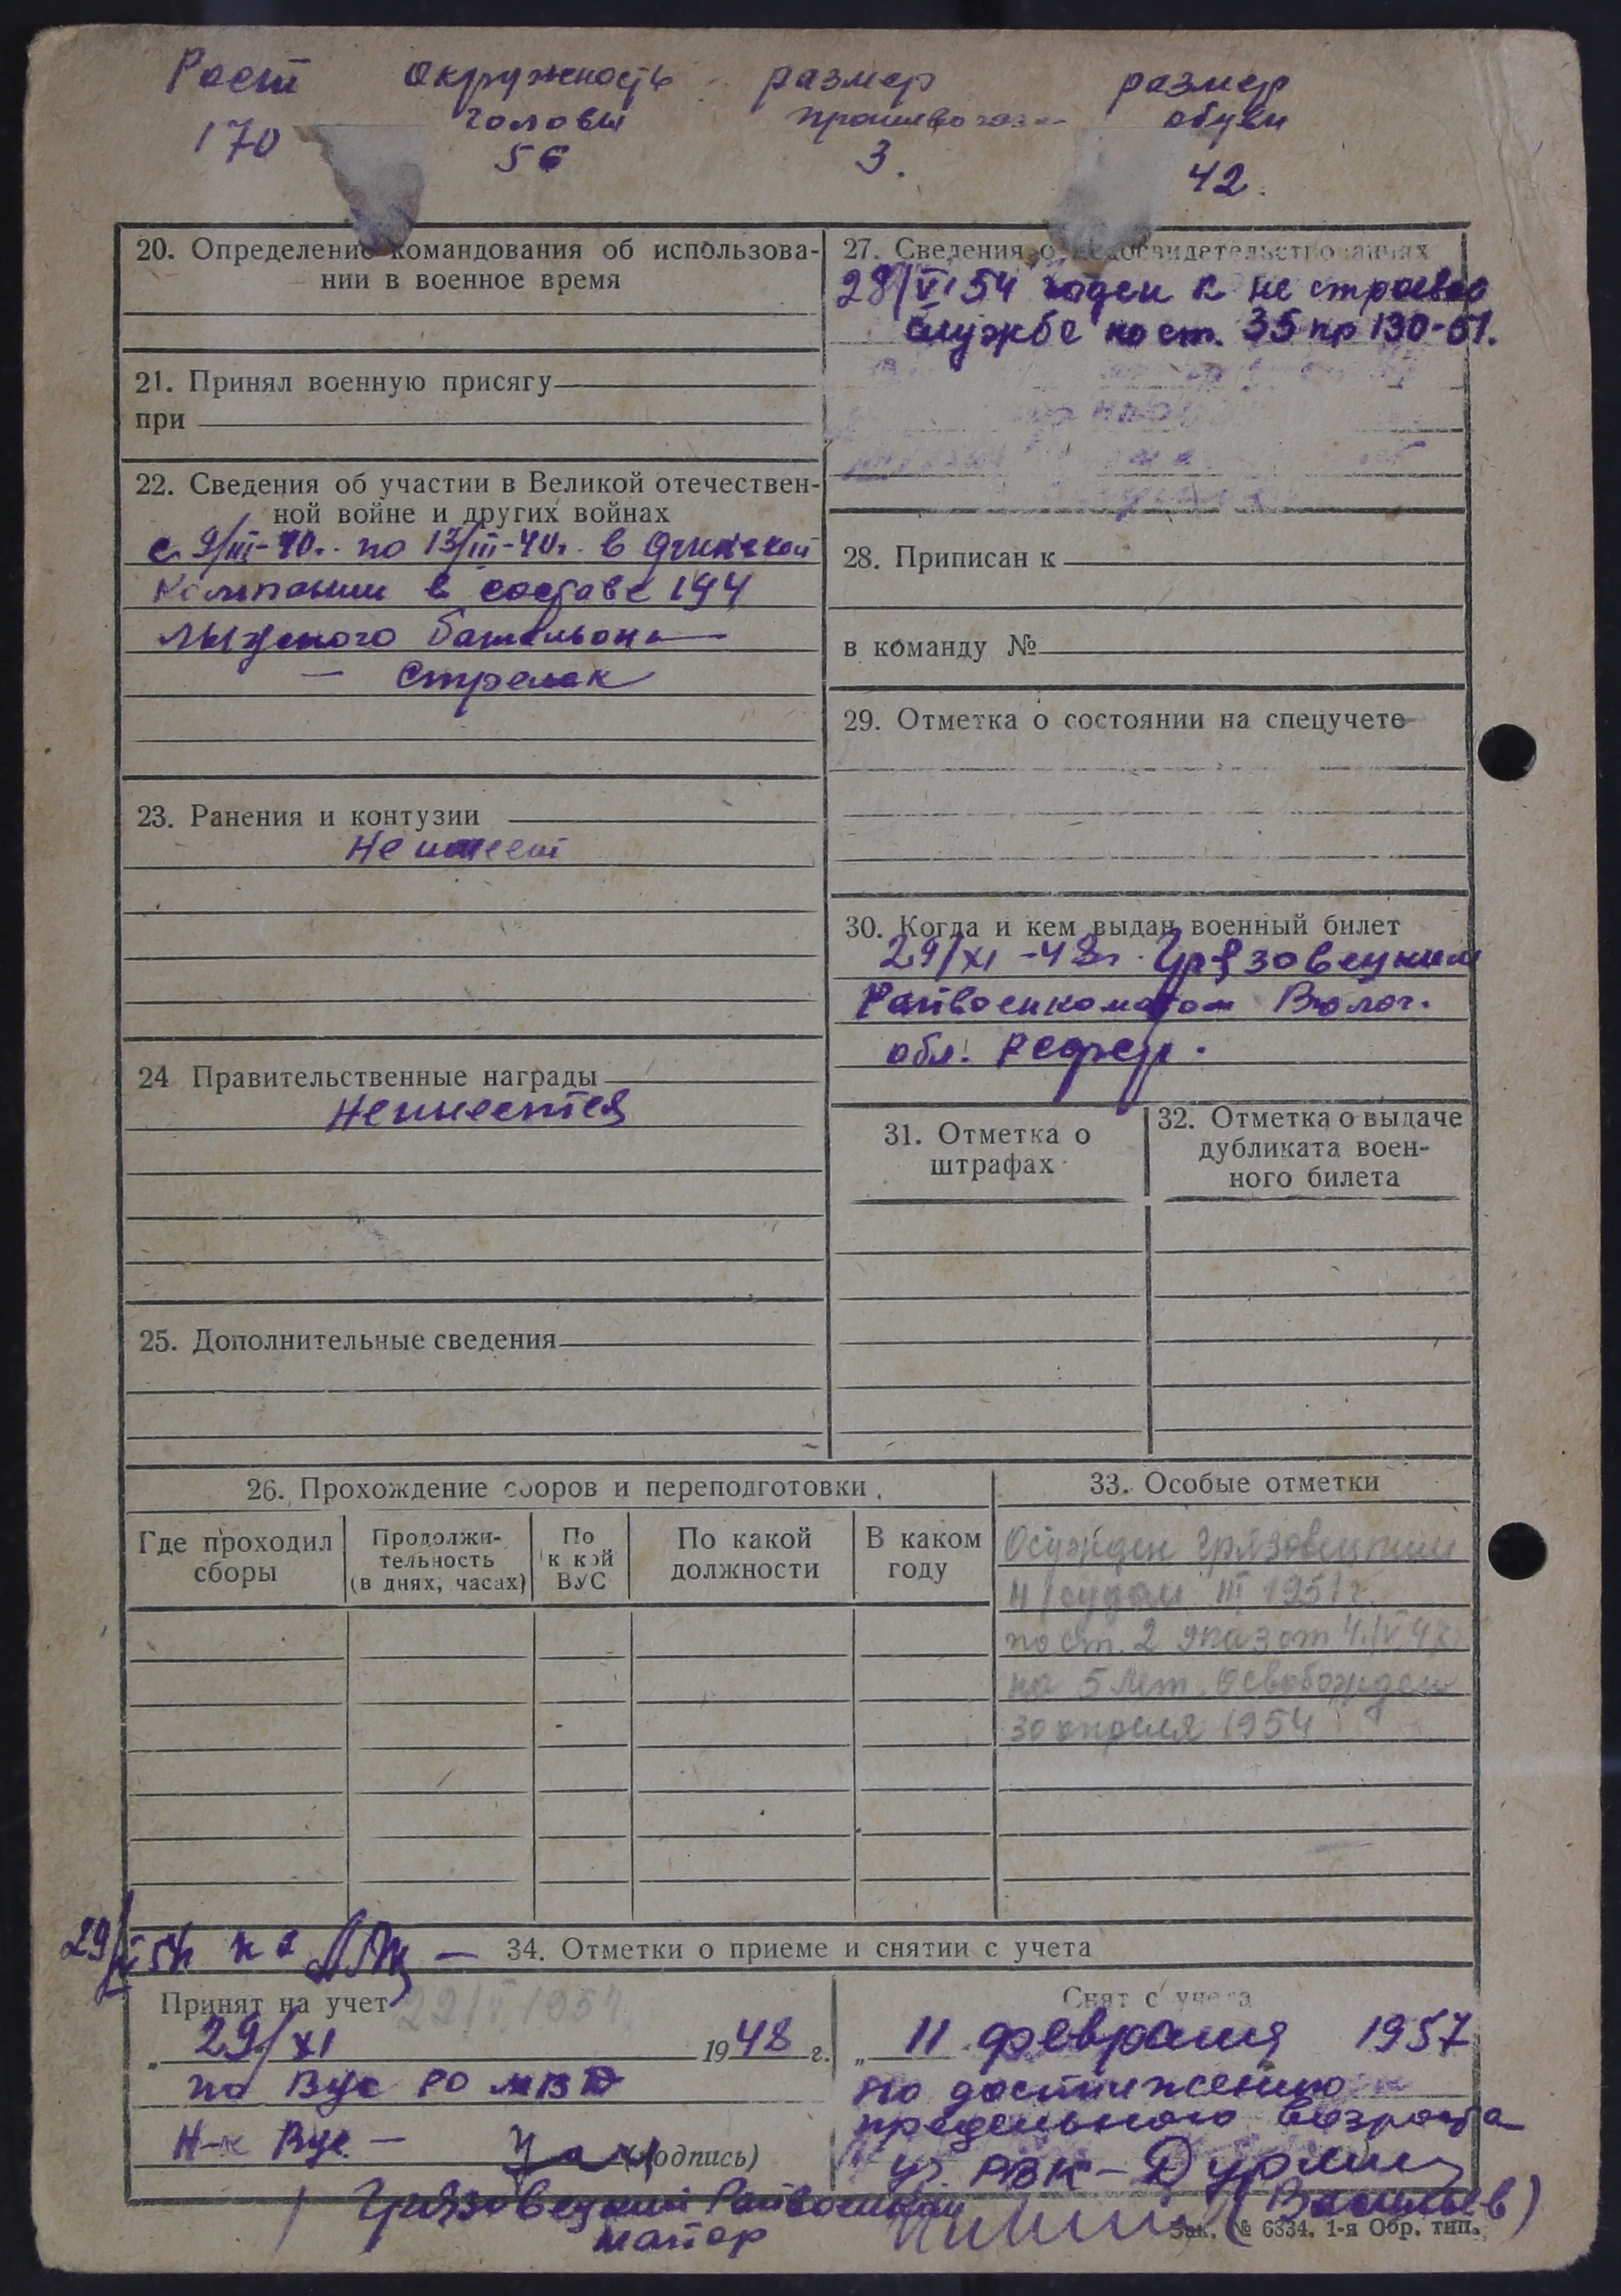 Рост окружность размер размер
головы противогаза обуви
170 56 3. 42.
20. Определение командования об использова-
нии в военное время
21. Принял военную присягу
при
22. Сведения об участии в Великой отечествен-
ной войне и других войнах
с 9/III-40г. по 13/III-40г. в финской
компании в составе 194
лыжного батальона
— Стрелок
23. Ранения и контузии
Не имеет
24 Правительственные награды
Не имеется
25. Дополнительные сведения
27. Сведения о медосвидетельствованиях
28/VI 54 годен к не строевой
службе по ст. 35 пр 130-51.
28. Приписан к
в команду №
29. Отметка о состоянии на спецучете
30. Когда и кем выдан военный билет
29/XI-48г. Грязовецким
Райвоенкоматом Волог.
обл.
31. Отметка о
штрафах
32. Отметка о выдаче
дубликата воен-
ного билета
26. Прохождение сборов и переподготовки
Где проходил
сборы
Продолжи-
тельность
(в днях, часах)
По
к кой
ВУС
По какой
должности
В каком
году
33. Особые отметки
Осужден Грязовецким
н/судом III 1951г.
по ст. 2 указ от 4/VI 47г
на 5 лет. Освобожден
30 апреля 1954
34. Отметки о приеме и снятии с учета
Принят на учет
29/XI 1948 г.
по Вус РО МВД
Н-к Вус —
(подпись)
Грязовецкий Райвоенком
майор
Снят с учета
„ 11 февраля 1957
по достижению
предельного возраста
РВК —
(Васильев)
Зак. № 6334. 1-я Обр. тип.